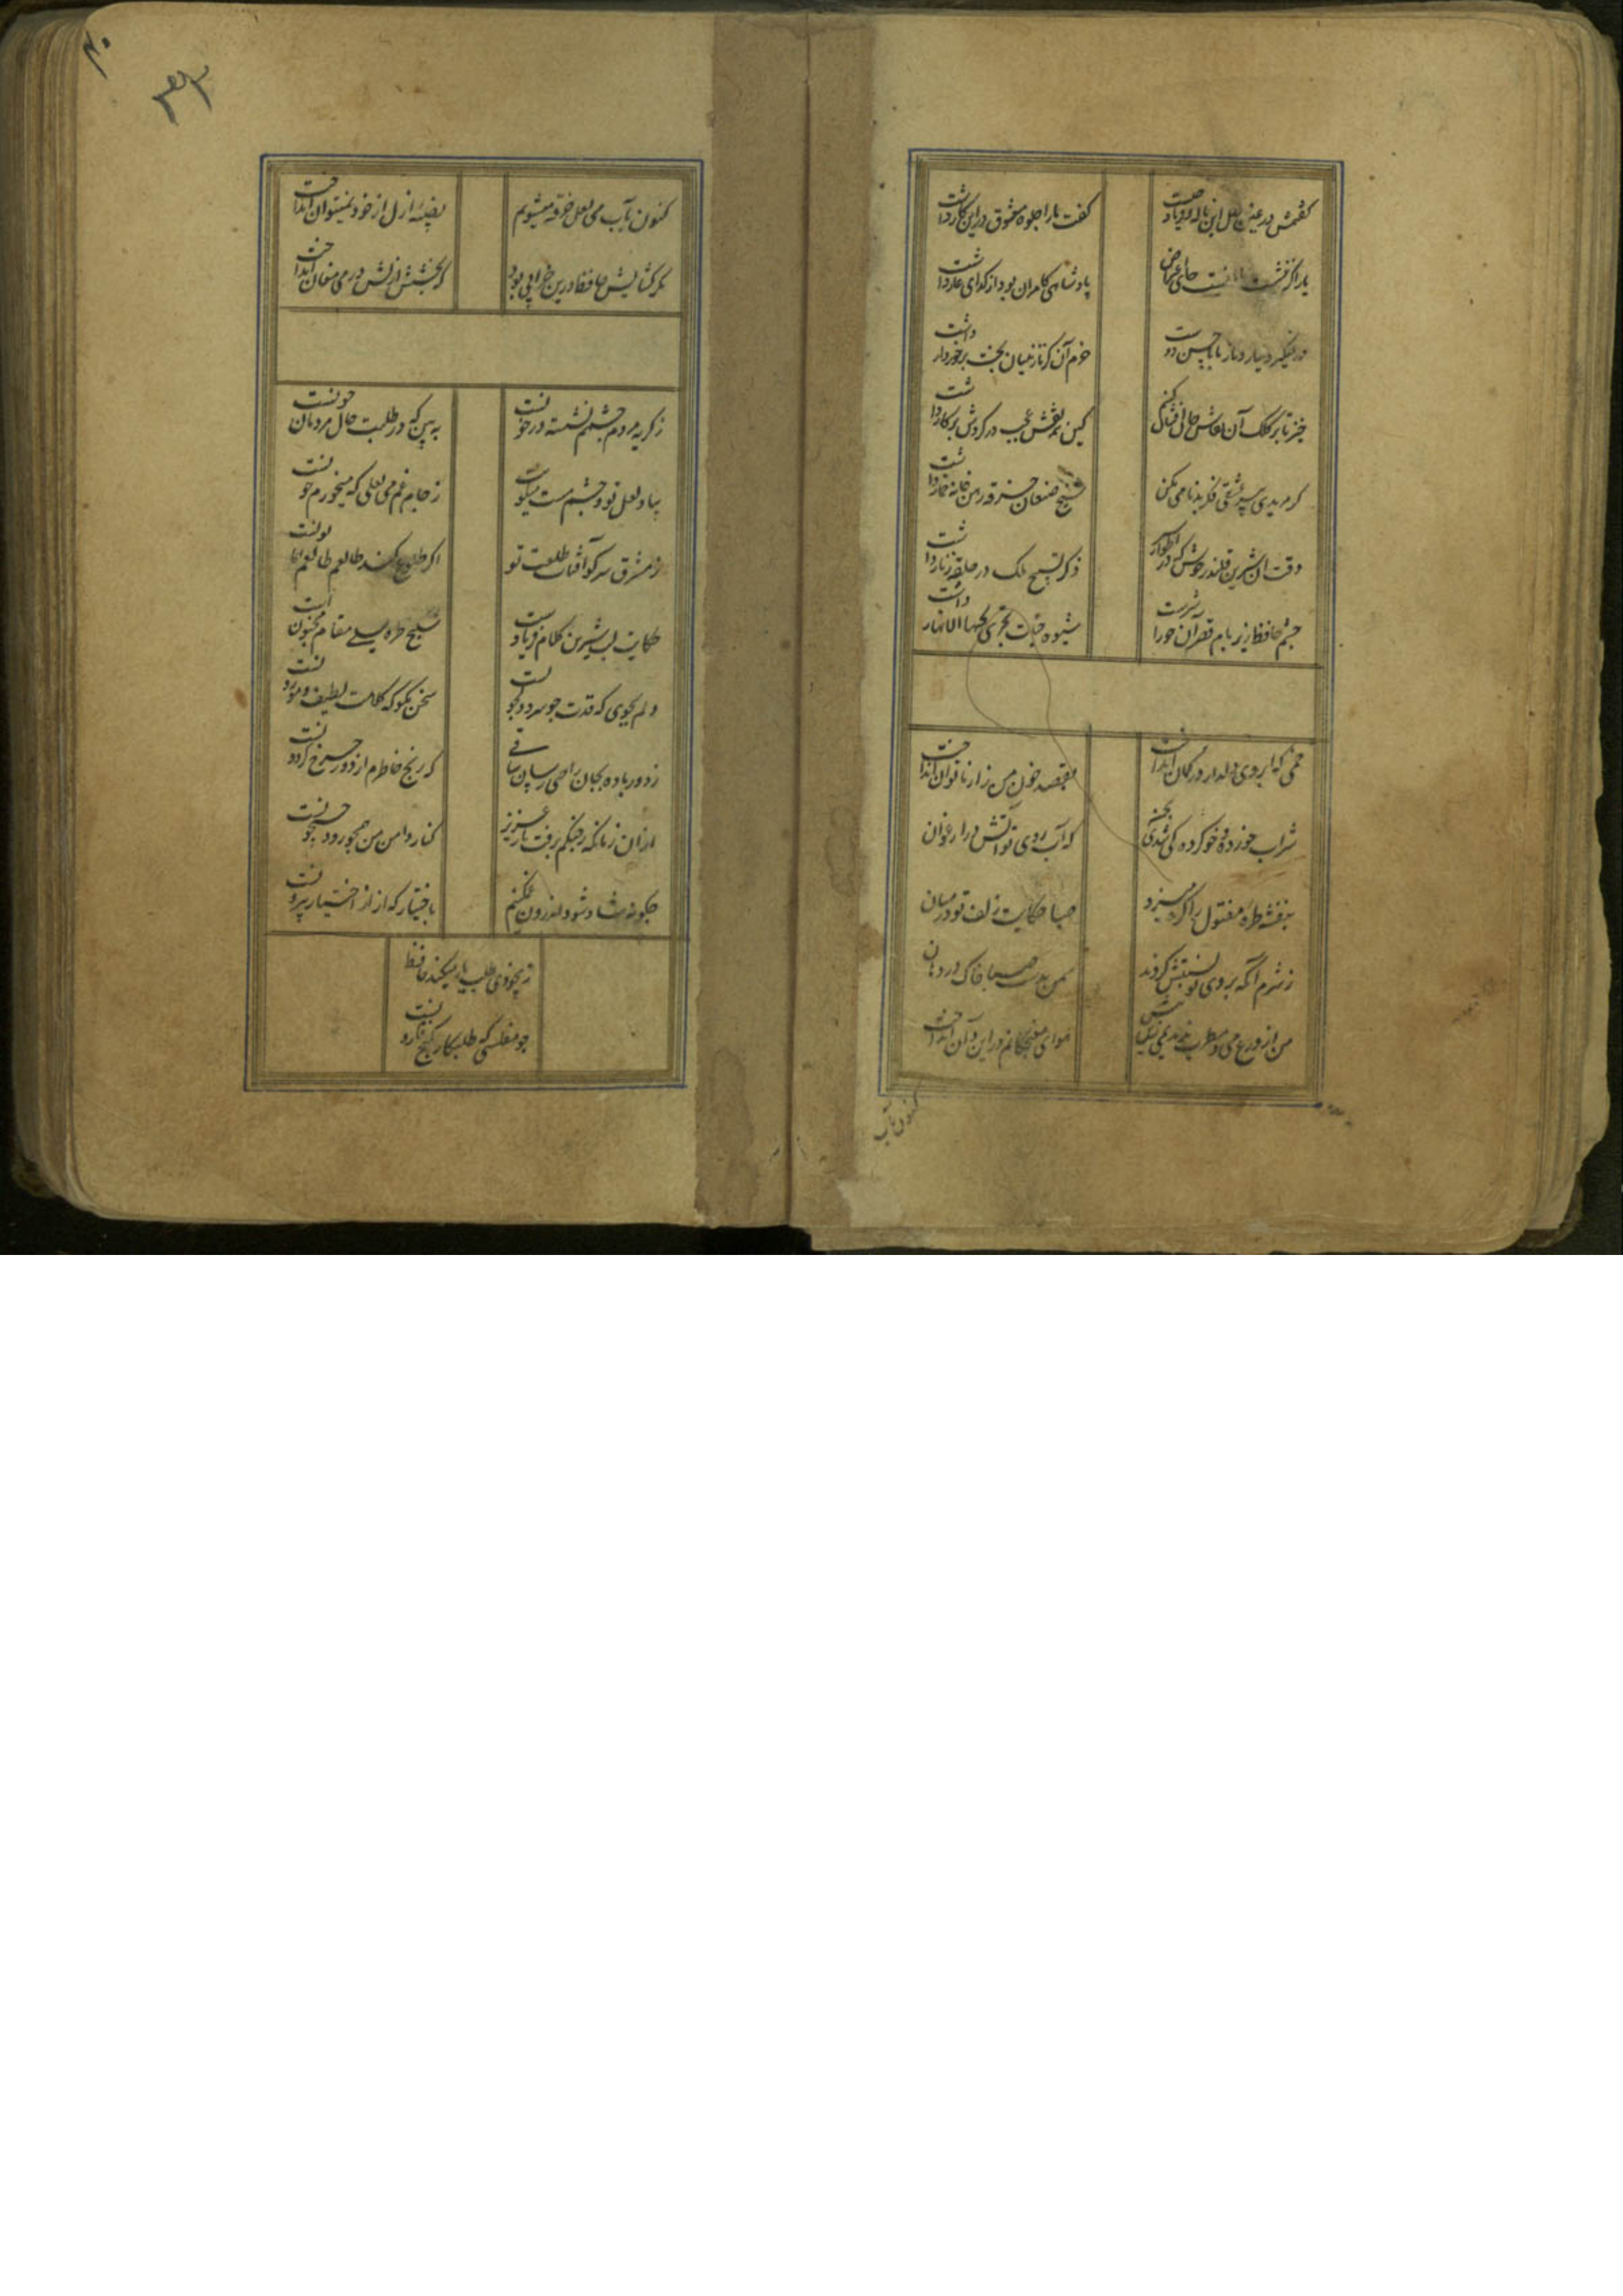 گفتمش در عین وصل این ناله و فریاد چیست
گفت ما را جلوه معشوق در این کار داشت
یار اگر ننشست با ما نیست جای اعتراض
پادشاهی کامران بود از گدای عار داشت
در نمیگیرد نیاز و ناز ما با حسن دوست
خرم آن کز نازنینان بخت برخوردار داشت
خیز تا بر کلک آن نقاش جان افشان کنیم
کین همه نقش عجب در گردش پرکار داشت
گر مرید عشقی فکر بدنامی مکن
شیخ صنعان خرقه رهن خانه خمار داشت
وقت آن شیرین قلندر خوش که در اطوار
ذکر تسبیح ملک در حلقه زنار داشت
چشم حافظ زیر بام قصر آن حورا سرشت
شیوه جنات تجری تحتها الانهار داشت
خمی که ابروی دلدار در کمان انداخت
بقصد خون من زار ناتوان انداخت
شراب خورده و خوی کرده کی شدی بچمن
که آب روی تو آتش در ارغوان
بنفشه طره مفتول را گره میزد
صبا حکایت زلف تو در میان
ز شرم آنکه بروی تو نسبتش کردند
سمن بدست صبا خاک در دهان
من از ورع می و مطرب ندیدمی زین پیش
هوای مغبچکانم در این و آن انداخت
کنون بآب
۴۰
کنون بآب می لعل خرقه میشویم
نصیبه ازل از خود نمیتوان انداخت
مگر گشایش حافظ درین خرابی بود
که بخشش ازلش در می مغان انداخت
ز گریه مردم چشمم نشسته در خونست
به بین که در طلبت حال مردمان چونست
بیاد لعل تو و چشم مست میگونت
ز جام غم می لعلی که میخورم خونست
ز مشرق سر کو آفتاب طلعت تو
اگر طلوع کند طالعم همایونست
حکایت لب شیرین کلام فرهاد است
شکنج طره لیلی مقام مجنون است
دلم بجوی که قدت چو سرو دلجویست
سخن بگو که کلامت لطیف و موزونست
ز دور باده بجان راحتی رسان ساقی
که رنج خاطرم از دور چرخ گردونست
ازان زمانکه ز چنگم برفت یار عزیز
کنار دامن من همچو رود جیحونست
چکونه شاد شود اندرون غمگینم
باختیار که از اختیار بیرونست
ز بیخودی طلب یار میکند حافظ
چو مفلسی که طلبکار گنج قارونست